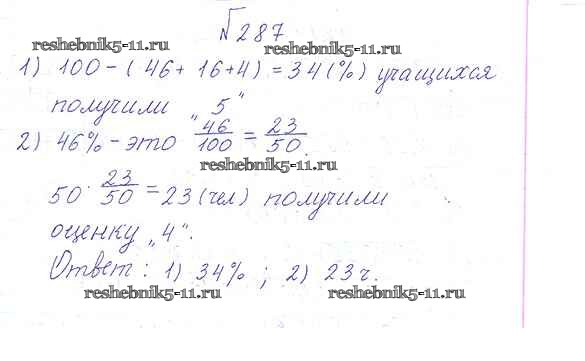 №287
reshebnik5-11.ru reshebnik5-11.ru
1) 100 - (46 + 16 + 4) = 34 (%) учащихся
получили "5"
2) 46% - это 46/100 = 23/50.
reshebnik5-11.ru
50 · 23/50 = 23 (чел) получили
оценку „4".
Ответ: 1) 34%; 2) 23 ч.
reshebnik5-11.ru reshebnik5-11.ru